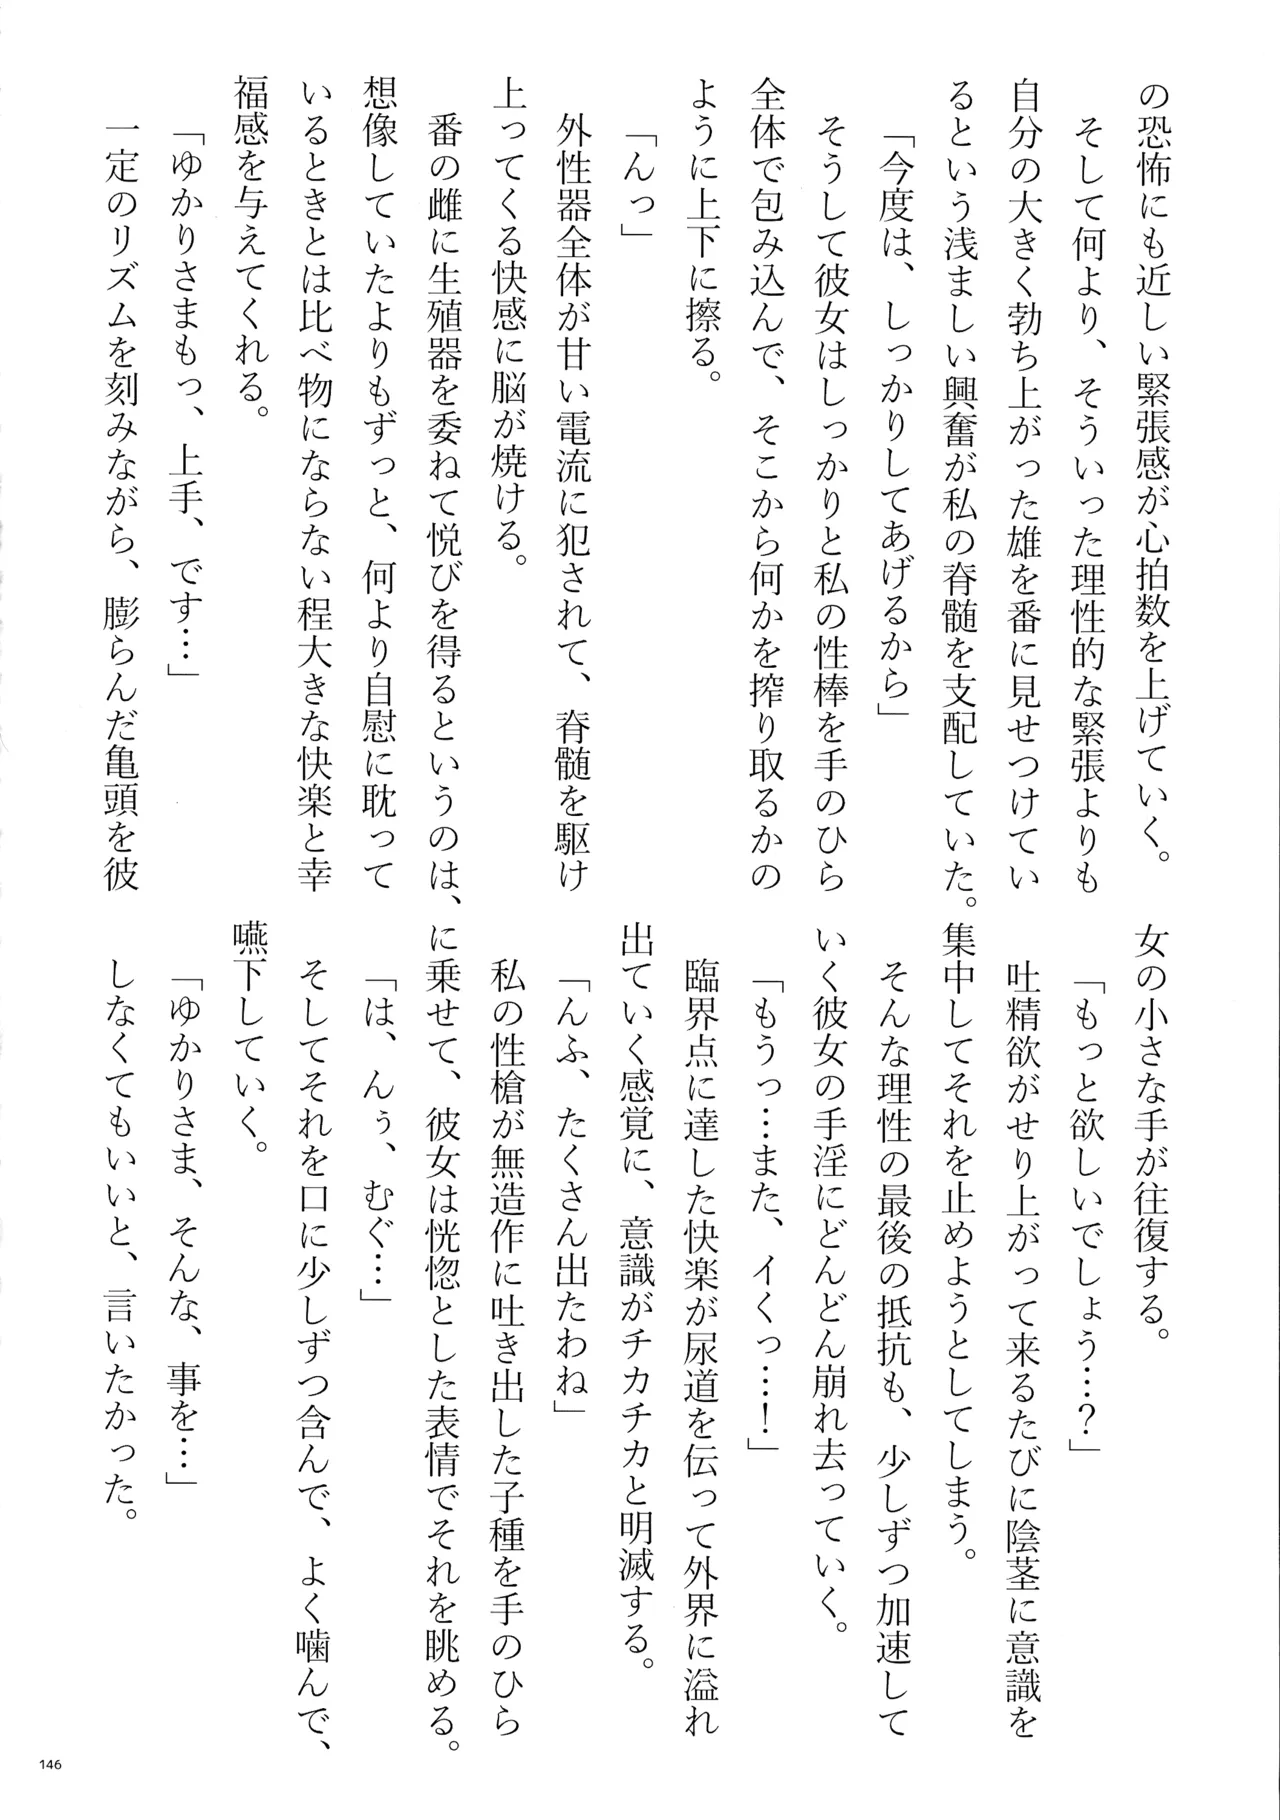 の恐怖にも近しい緊張感が心拍数を上げていく。
そして何より、そういった理性的な緊張よりも
自分の大きく勃ち上がった雄を番に見せつけてい
るという浅ましい興奮が私の脊髄を支配していた。
「今度は、しっかりしてあげるから」
そうして彼女はしっかりと私の性棒を手のひら
全体で包み込んで、そこから何かを搾り取るかの
ように上下に擦る。
「んっ」
外性器全体が甘い電流に犯されて、脊髄を駆け
上ってくる快感に脳が焼ける。
番の雌に生殖器を委ねて悦びを得るというのは、
想像していたよりもずっと、何より自慰に耽って
いるときとは比べ物にならない程大きな快楽と幸
福感を与えてくれる。
「ゆかりさまもっ、上手、です…」
一定のリズムを刻みながら、膨らんだ亀頭を彼
女の小さな手が往復する。
「もっと欲しいでしょう…?」
吐精欲がせり上がって来るたびに陰茎に意識を
集中してそれを止めようとしてしまう。
そんな理性の最後の抵抗も、少しずつ加速して
いく彼女の手淫にどんどん崩れ去っていく。
「もうっ…また、イくっ…!」
臨界点に達した快楽が尿道を伝って外界に溢れ
出ていく感覚に、意識がチカチカと明滅する。
「んふ、たくさん出たわね」
私の性槍が無造作に吐き出した子種を手のひら
に乗せて、彼女は恍惚とした表情でそれを眺める。
「は、んぅ、むぐ…」
そしてそれを口に少しずつ含んで、よく噛んで、
嚥下していく。
「ゆかりさま、そんな、事を…」
しなくてもいいと、言いたかった。
146